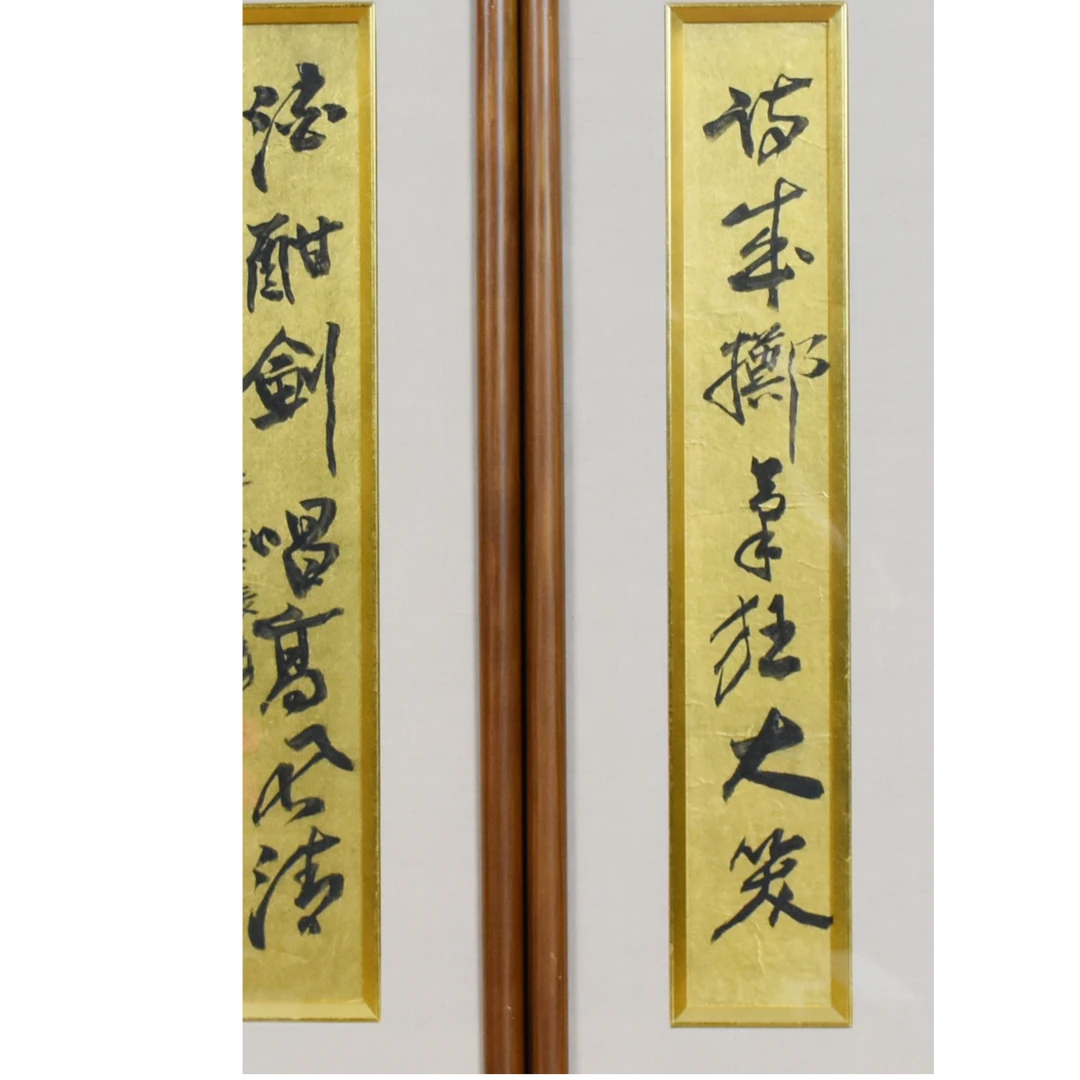 詩成擲筆狂大笑
酒酣劍唱高清